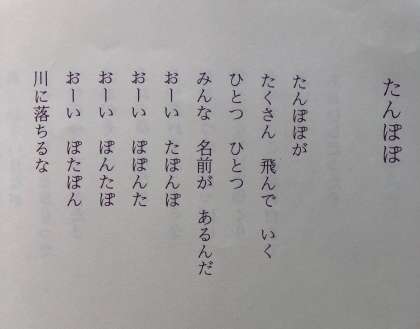 たんぽぽ
たんぽぽが
たくさん　飛んで　いく
ひとつ　ひとつ
みんな　名前が　あるんだ
おーい　たぽんぽ
おーい　ぽぽんた
おーい　ぽんたぽ
おーい　ぽたぽん
川に落ちるな